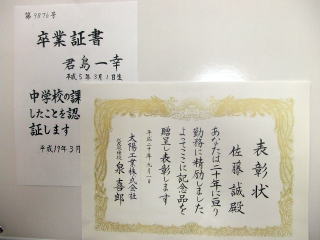 第9876号
卒業証書
君島一幸
平成5年3月1日生
中学校の課
したことを認
証します
平成19年3月
表彰状
佐藤誠殿
あなたは二十年に亘り
勤務に精励しました
よってここに記念品を
贈呈し表彰します
平成二十年九月一日
太陽工業株式会社
代表取締役 泉喜郎